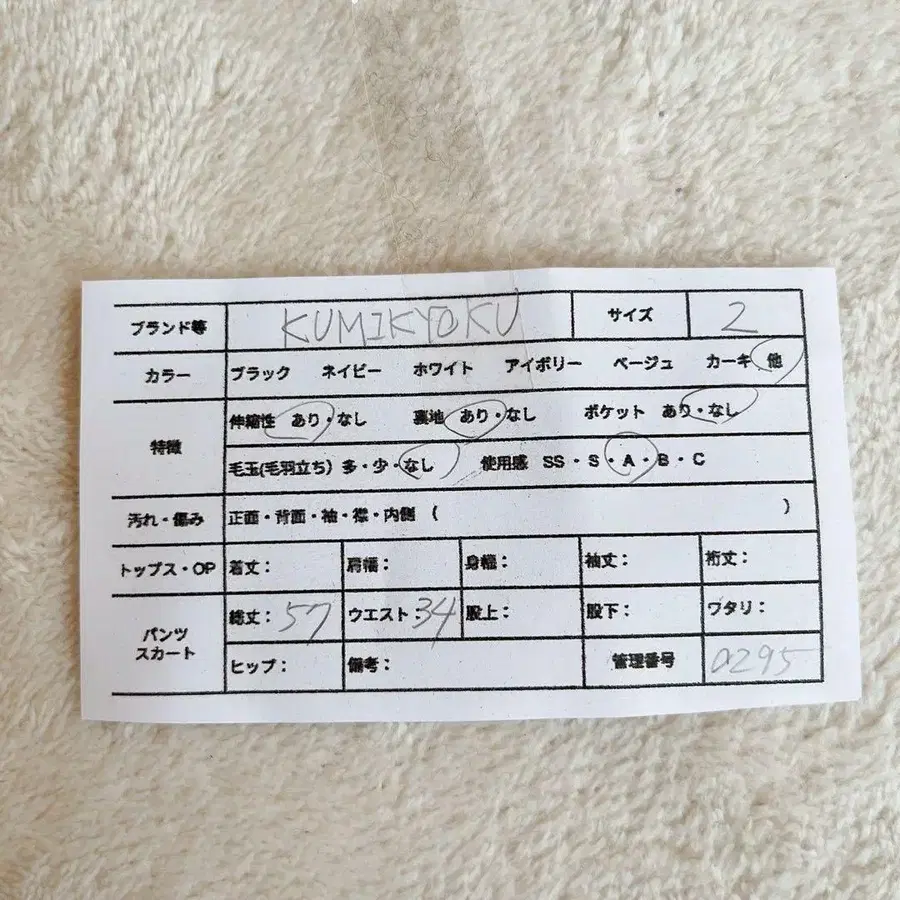 ブランド等 KUMIKYOKU サイズ 2
カラー ブラック ネイビー ホワイト アイボリー ベージュ カーキ 他
特徴 伸縮性 あり・なし 裏地 あり・なし ポケット あり・なし
毛玉(毛羽立ち) 多・少・なし 使用感 SS・S・A・B・C
汚れ・傷み 正面・背面・袖・襟・内側 ( )
トップス・OP 着丈: 肩幅: 身幅: 袖丈: 裄丈:
パンツ スカート 総丈: 57 ウエスト: 34 股上: 股下: ワタリ:
ヒップ: 備考: 管理番号 0295